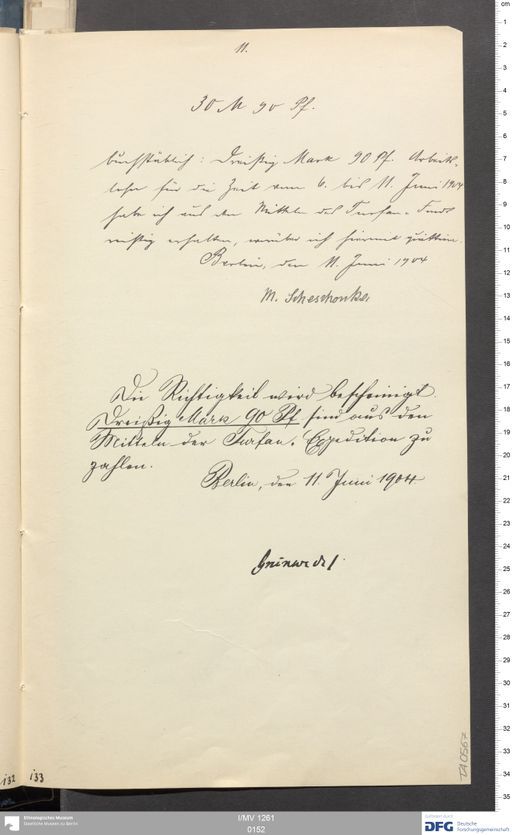 11.
30 M 90 Pf.
buchstäblich: Dreißig Mark 90 Pf. Arbeits-
lohn für die Zeit vom 6. bis 11. Juni 1904
habe ich aus den Mitteln des Turfan-Fonds
richtig erhalten, worüber ich hiermit quittire.
Berlin, den 11 Juni 1904
M. Scheschonka
Die Richtigkeit wird bescheinigt.
Dreißig Mark 90 Pf sind aus den
Mitteln der Turfan-Expedition zu
zahlen.
Berlin, den 11. Juni 1904
Grünwedel
132 133
TA 0567
Ethnologisches Museum
Staatliche Museen zu Berlin
I/MV 1261
0152
DFG Deutsche
Forschungsgemeinschaft
cm
1
2
3
4
5
6
7
8
9
10
11
12
13
14
15
16
17
18
19
20
21
22
23
24
25
26
27
28
29
30
31
32
33
34
35